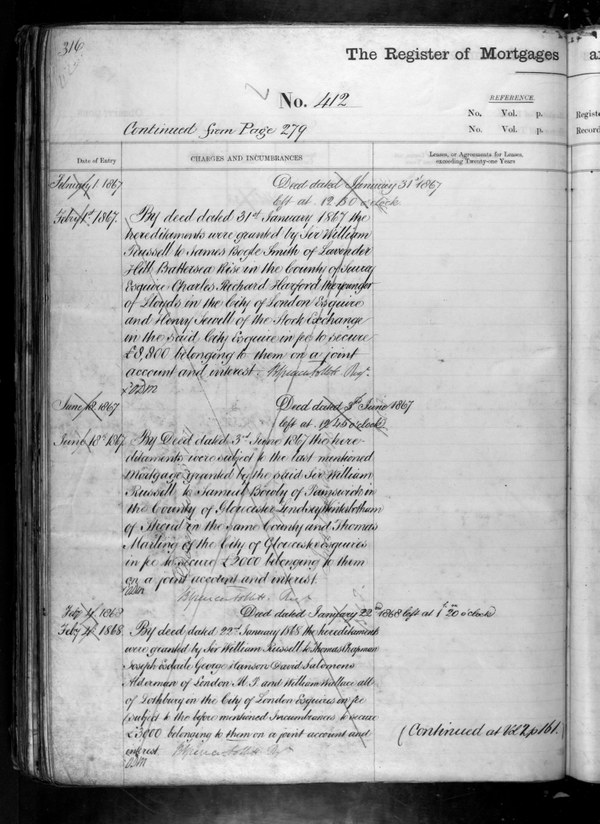 316
The Register of Mortgages a
No. 412
REFERENCE.
No. Vol. p.
No. Vol. p.
Regist
Record
Continued from Page 279
Date of Entry
CHARGES AND INCUMBRANCES
Leases, or Agreements for Leases, exceeding Twenty-one Years
February 1 1867
Deed dated January 31st 1867
left at 12.50 o'clock
Feby 1st 1867
By deed dated 31st January 1867 the
hereditaments were granted by Sir William
Russell to James Bogle Smith of Lavender
Hill Battersea Rise in the County of Surrey
Esquire Charles Richard Harford the younger
of Lloyds in the City of London Esquire
and Henry Sewill of the Stock Exchange
in the said City Esquire in fee to secure
£8,800 belonging to them on a joint
account and interest. Regr.
June 18 1867
Deed dated 3rd June 1867
left at 12.45 o'clock
June 18th 1867
By Deed dated 3rd June 1867 the here-
ditaments were subject to the last mentioned
Mortgage granted by the said Sir William
Russell to Samuel Bowly of Painswick in
the County of Gloucester Lindsey Winterbotham
of Stroud in the same County and Thomas
Marling of the City of Gloucester Esquires
in fee to secure £5000 belonging to them
on a joint account and interest.
Feby 4 1868
Deed dated January 22nd 1868 left at 1.20 o'clock
Feby 4 1868
By deed dated 22nd January 1868 the hereditaments
were granted by Sir William Russell to Thomas Chapman
Joseph Esdaile George Hanson David Salomons
Alderman of London M.P. and William Wallace all
of Lothbury in the City of London Esquires in fee
subject to the before mentioned Incumbrances to secure
£3000 belonging to them on a joint account and
interest
(Continued at Vol 2 p 161.)